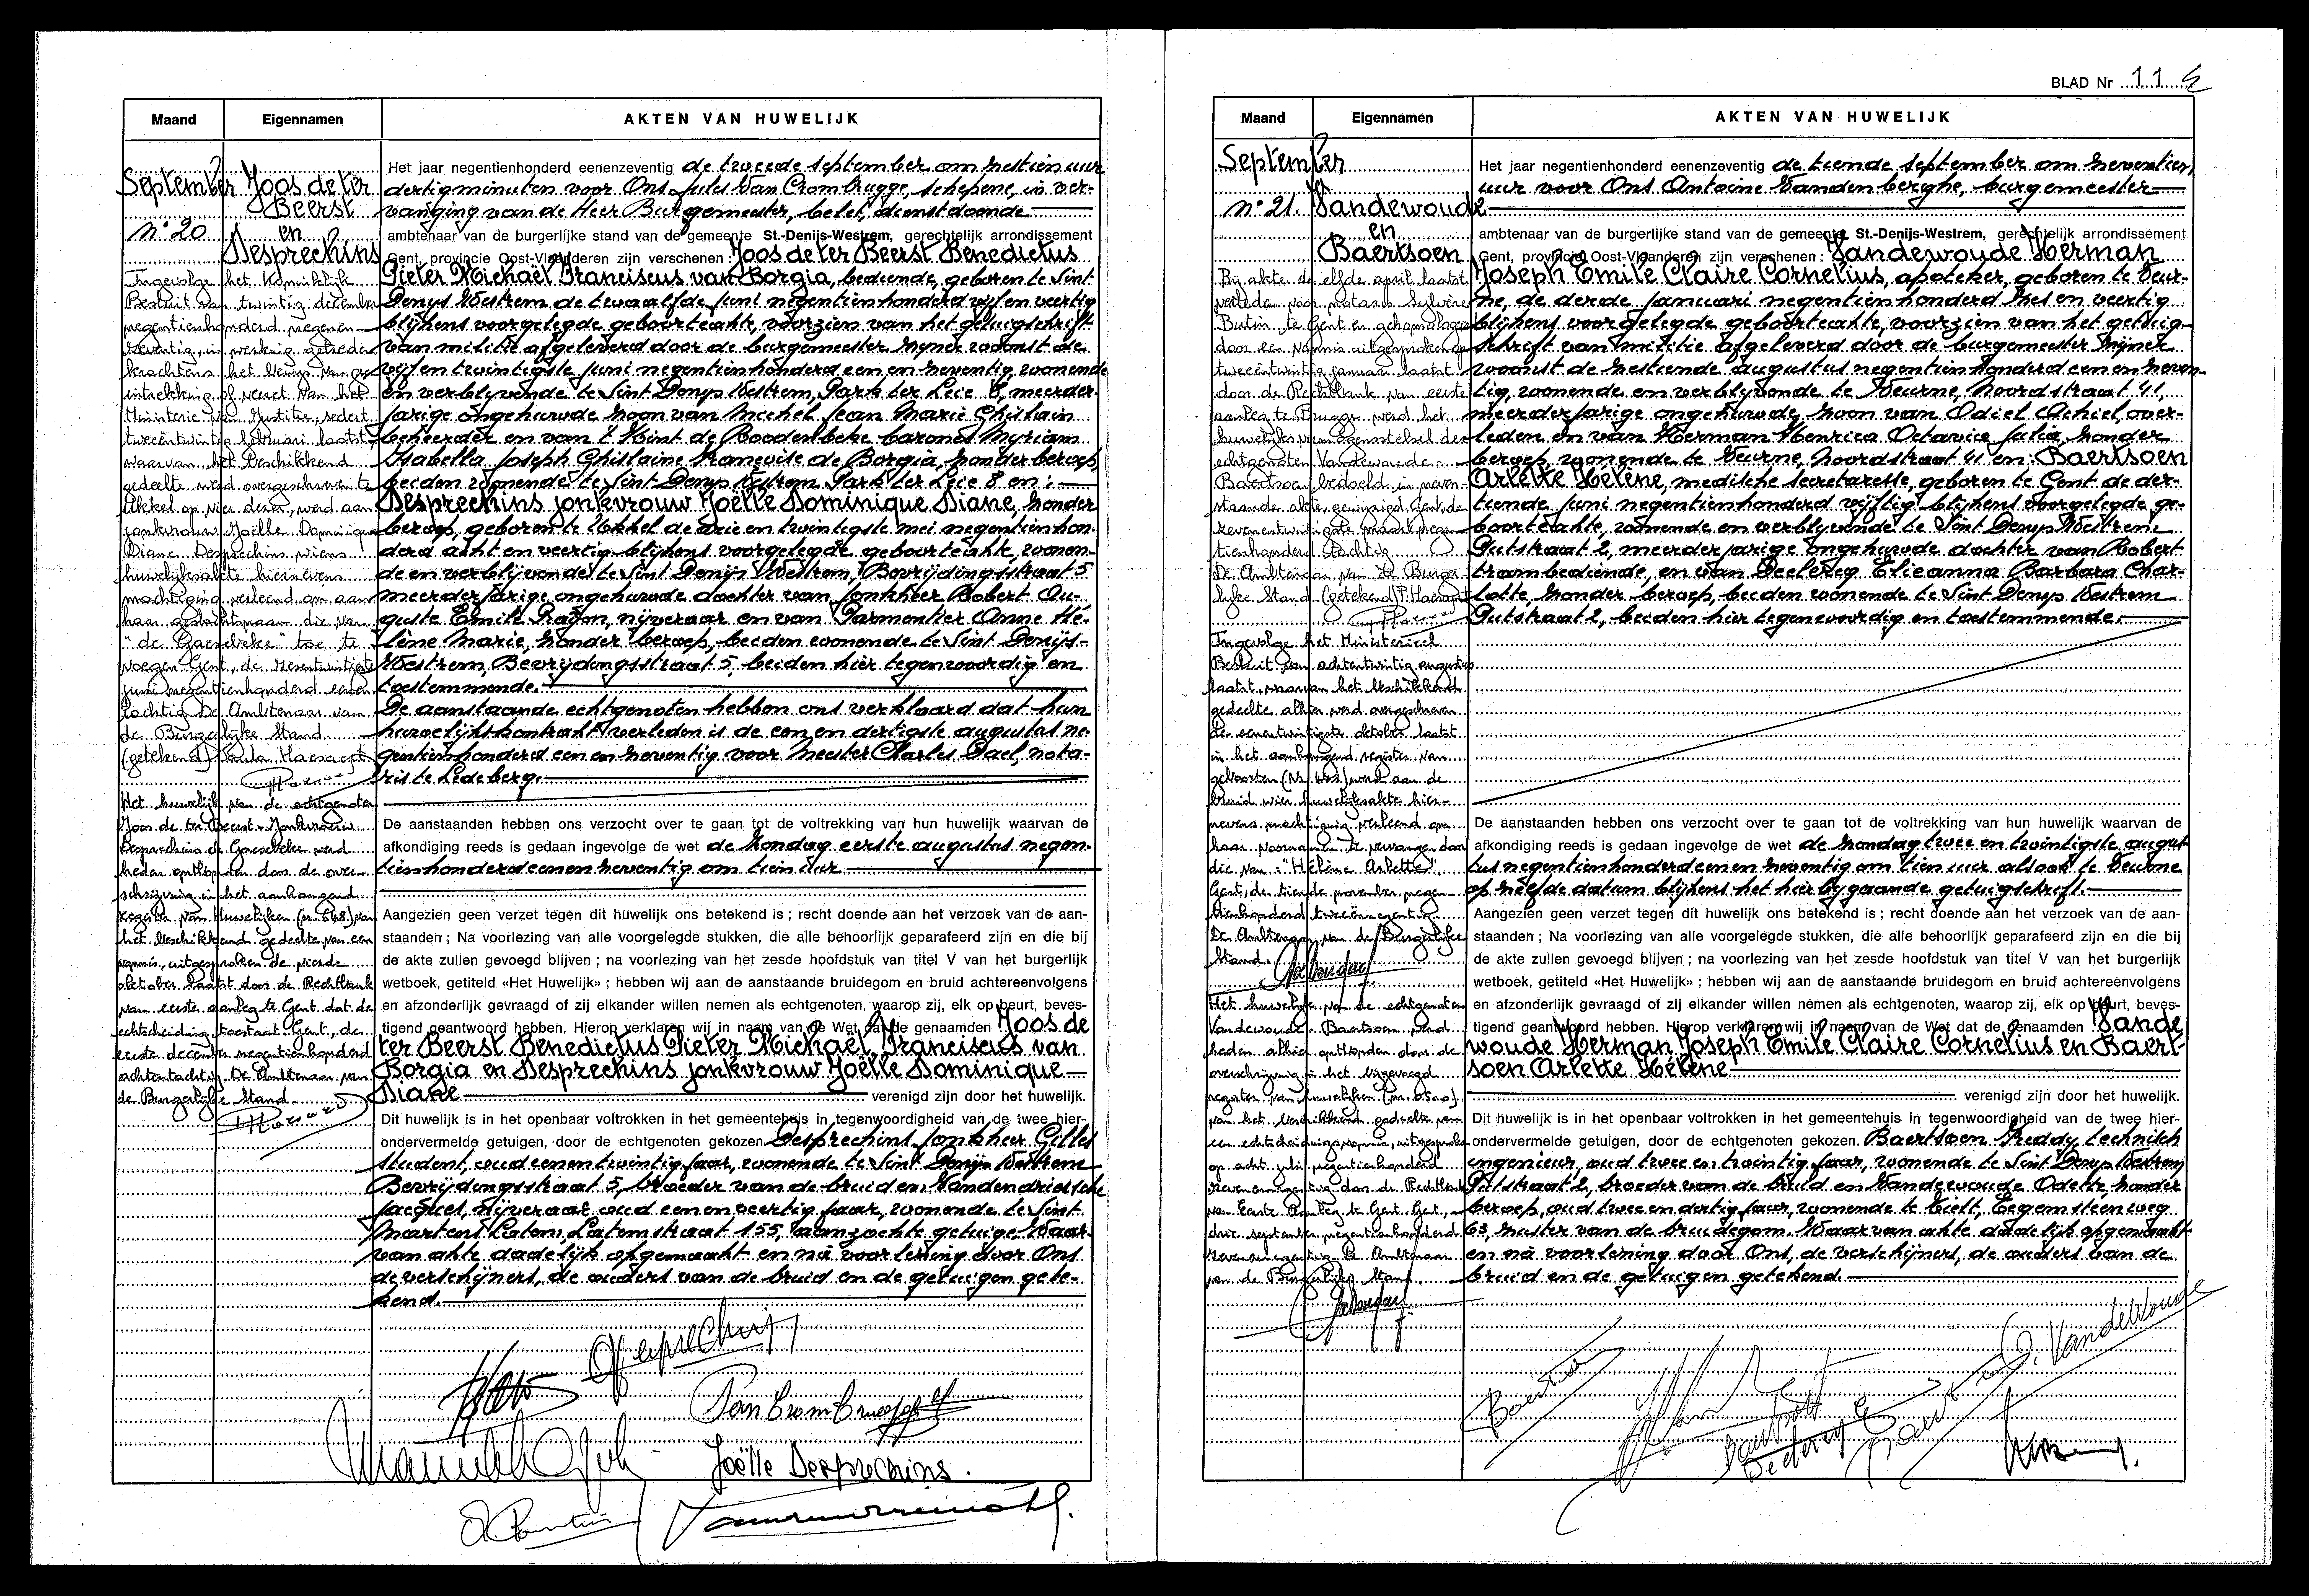 Maand
Eigennamen
AKTEN VAN HUWELIJK
September
n° 20
Joos de ter
Beerst
en
Desprechins
Het jaar negentienhonderd eenenzeventig de tweede september om zestien uur
dertig minuten voor Ons Jules Van Crombrugge, schepene, in ver-
vanging van de Heer Burgemeester, belet, dienstdoende
ambtenaar van de burgerlijke stand van de gemeente St.-Denijs-Westrem, gerechtelijk arrondissement
Gent, provincie Oost-Vlaanderen zijn verschenen : Joos de ter Beerst Benedictus
Pieter Michaël Franciscus van Borgia, bediende, geboren te Sint
Denys Westrem de twaalfde juni negentienhonderd vijf en veertig
blijkens voorgelegde geboorteakte, voorzien van het getuigschrift
van militie afgeleverd door de burgemeester zijner woonst de
vijf en twintigste juni negentienhonderd een en zeventig, wonende
en verblyvende te Sint Denys Westrem, Park ter Leie 8, meerder-
jarige ongehuwde zoon van Michel Jean Marie Ghislain
beheerder en van 't Kint de Roodenbeke barones Myriam
Isabella Joseph Ghislaine Françoise de Borgia, zonder beroep,
beiden wonende te Sint Denys Westrem Park ter Leie 8 en :
Desprechins jonkvrouw Joëlle Dominique Diane, zonder
beroep, geboren te Ukkel de drie en twintigste mei negentienhon-
derd acht en veertig blijkens voorgelegde geboorteakte, wonen-
de en verblijvende te Sint Denijs Westrem, Bevrijdingsstraat 5
meerderjarige ongehuwde dochter van jonkheer Robert Au-
guste Emile Gaston, nijveraar en van Parmentier Anne Hé-
lène Marie, zonder beroep, beiden wonende te Sint Denijs-
Westrem, Bevrydingsstraat 5, beiden hier tegenwoordig en
toestemmende.
De aanstaande echtgenoten hebben ons verklaard dat hun
huwelijkskontrakt verleden is de een en dertigste augustus ne-
gentienhonderd een en zeventig voor meester Charles Dael, nota-
ris te Ledeberg.
De aanstaanden hebben ons verzocht over te gaan tot de voltrekking van hun huwelijk waarvan de
afkondiging reeds is gedaan ingevolge de wet de zondag eerste augustus negen-
tienhonderd eenen zeventig om tien uur
Aangezien geen verzet tegen dit huwelijk ons betekend is ; recht doende aan het verzoek van de aan-
staanden ; Na voorlezing van alle voorgelegde stukken, die alle behoorlijk geparafeerd zijn en die bij
de akte zullen gevoegd blijven ; na voorlezing van het zesde hoofdstuk van titel V van het burgerlijk
wetboek, getiteld «Het Huwelijk» ; hebben wij aan de aanstaande bruidegom en bruid achtereenvolgens
en afzonderlijk gevraagd of zij elkander willen nemen als echtgenoten, waarop zij, elk op beurt, beves-
tigend geantwoord hebben. Hierop verklaren wij in naam van de Wet dat de genaamden Joos de
ter Beerst Benedictus Pieter Michaël Franciscus van
Borgia en Desprechins jonkvrouw Joëlle Dominique
Diane verenigd zijn door het huwelijk.
Dit huwelijk is in het openbaar voltrokken in het gemeentehuis in tegenwoordigheid van de twee hier-
ondervermelde getuigen, door de echtgenoten gekozen Desprechins jonkheer Gilles
student, oud eenen twintig jaar, wonende te Sint Denijs Westrem
Bevrijdingsstraat 5, broeder van de bruid en Vandendriesche
Jacques, nijveraar oud eenen veertig jaar, wonende te Sint
Martens Latem, Latemstraat 155, aanzochte getuige. Waar-
van akte dadelijk opgemaakt en na voorlezing door Ons
de verschijners, de ouders van de bruid en de getuigen gete-
kend.
Ingevolge het Koninklijk
Besluit van twintig december
negentienhonderd negenen-
zeventig, in werking getreden
krachtens het bewijs van niet
intrekking of verzet van het
Ministerie van Justitie, sedert
tweeëntwintig februari laatst,
waarvan het beschikkend
gedeelte werd overgeschreven te
jonkvrouw Joëlle Dominique
Diane Desprechins wiens
huwelijksakte hiernevens
machtiging verleend om aan
haar geslachtsnaam die van
"de Gaesebeke" toe te
voegen. Gent, de zevenentwintigste
juni negentienhonderd eenen-
tachtig. De Ambtenaar van
de Burgerlijke Stand
(getekend)
Het huwelijk van de echtgenoten
Joos de ter Beerst - Jonkvrouw
Desprechins de Gaesebeke werd
heden ontbonden door de over-
schrijving in het aanhangend
register van Huwelijken (nr 648) van
het beschikkend gedeelte van een
vonnis, uitgesproken de vierde
oktober laatst door de Rechtbank
van eerste aanleg te Gent dat de
echtscheiding toestaat. Gent, de
eerste december negentienhonderd
achtentachtig. De Ambtenaar van
de Burgerlijke Stand.
Joëlle Desprechins.
BLAD Nr 11
Maand
Eigennamen
AKTEN VAN HUWELIJK
September
n° 21.
Vandewoude
en
Baertsoen
Het jaar negentienhonderd eenenzeventig de tiende september om zeventien
uur voor Ons Antoine Vandenberghe, burgemeester
ambtenaar van de burgerlijke stand van de gemeente St.-Denijs-Westrem, gerechtelijk arrondissement
Gent, provincie Oost-Vlaanderen zijn verschenen : Vandewoude Herman
Joseph Emile Claire Cornelius, apoteker, geboren te Veur-
ne, de derde januari negentienhonderd zes en veertig
blijkens voorgelegde geboorteakte, voorzien van het getuig-
schrift van militie afgeleverd door de burgemeester zijner
woonst de zestiende augustus negentienhonderd een en zeven-
tig, wonende en verblijvende te Veurne, Noordstraat 41,
meerderjarige ongehuwde zoon van Odiel Achiel, over-
leden en van Herman Henrica Octavia Julia, zonder
beroep, wonende te Veurne, Noordstraat 41 en: Baertsoen
Arlette Hélène, medische secretaresse, geboren te Gent de der-
tiende juni negentienhonderd vijftig blijkens voorgelegde ge-
boorteakte, wonende en verblyvende te Sint Denys Westrem
Putstraat 2, meerderjarige ongehuwde dochter van Robert
trambediende, en van Declercq Elieanna Barbara Char-
lotte, zonder beroep, beiden wonende te Sint Denys Westrem
Putstraat 2, beiden hier tegenwoordig en toestemmende.
De aanstaanden hebben ons verzocht over te gaan tot de voltrekking van hun huwelijk waarvan de
afkondiging reeds is gedaan ingevolge de wet de zondag twee en twintigste augus-
tus negentienhonderd een en zeventig om tien uur alsook te Veurne
op zelfde datum blijkens het hierbijgaande getuigschrift.
Aangezien geen verzet tegen dit huwelijk ons betekend is ; recht doende aan het verzoek van de aan-
staanden ; Na voorlezing van alle voorgelegde stukken, die alle behoorlijk geparafeerd zijn en die bij
de akte zullen gevoegd blijven ; na voorlezing van het zesde hoofdstuk van titel V van het burgerlijk
wetboek, getiteld «Het Huwelijk» ; hebben wij aan de aanstaande bruidegom en bruid achtereenvolgens
en afzonderlijk gevraagd of zij elkander willen nemen als echtgenoten, waarop zij, elk op beurt, beves-
tigend geantwoord hebben. Hierop verklaren wij in naam van de Wet dat de genaamden Vande
woude Herman Joseph Emile Claire Cornelius en Baert-
soen Arlette Hélène
verenigd zijn door het huwelijk.
Dit huwelijk is in het openbaar voltrokken in het gemeentehuis in tegenwoordigheid van de twee hier-
ondervermelde getuigen, door de echtgenoten gekozen. Baertsoen Freddy, technisch
ingenieur, oud twee en twintig jaar, wonende te Sint Denys Westrem
Putstraat 2, broeder van de bruid en Vandewoude Odette, zonder
beroep, oud twee en dertig jaar, wonende te Tielt, Eegemsteenweg
63, zuster van de bruidegom. Waarvan akte dadelijk opgemaakt
en na voorlezing door Ons, de verschijners, de ouders van de
bruid en de getuigen getekend.
Bij akte de elfde april laatst
verleden voor notaris Sylvère
Butin te Gent en gehomologeerd
door een vonnis uitgesproken op
tweeëntwintig januari laatst
door de Rechtbank van eerste
aanleg te Brugge werd het
huwelijksvermogensstelsel der
echtgenoten Vandewoude -
Baertsoen bedoeld in neven-
staande akte, gewijzigd. Gent, de
zevenentwintigste maart negen-
tienhonderd tachtig.
De Ambtenaar van de Burger-
lijke Stand (getekend)
Ingevolge het Ministerieel
Besluit van achtentwintig augustus
laatst, waarvan het beschikkend
gedeelte alhier werd overgeschreven
de eenentwintigste oktober laatst
in het aanhangend register van
geboorten werd aan de
bruid wier huwelijksakte hier-
nevens machtiging verleend om
haar voornamen te vervangen door
die van: "Hélène Arlette".
Gent, de tiende november negen-
tienhonderd tweeënnegentig.
De Ambtenaar van de Burgerlijke
Stand.
Het huwelijk van de echtgenoten
Vandewoude - Baertsoen werd
heden alhier ontbonden door de
overschrijving in het bijgevoegd
register van huwelijken (nr. 0500)
van het beschikkend gedeelte van
een echtscheidingsvonnis, uitgesproken
op acht juli negentienhonderd
zevenennegentig door de Rechtbank
van Eerste Aanleg te Gent. Gent,
drie september negentienhonderd
zevenennegentig. De Ambtenaar
van de Burgerlijke Stand.
O. Vandewoude